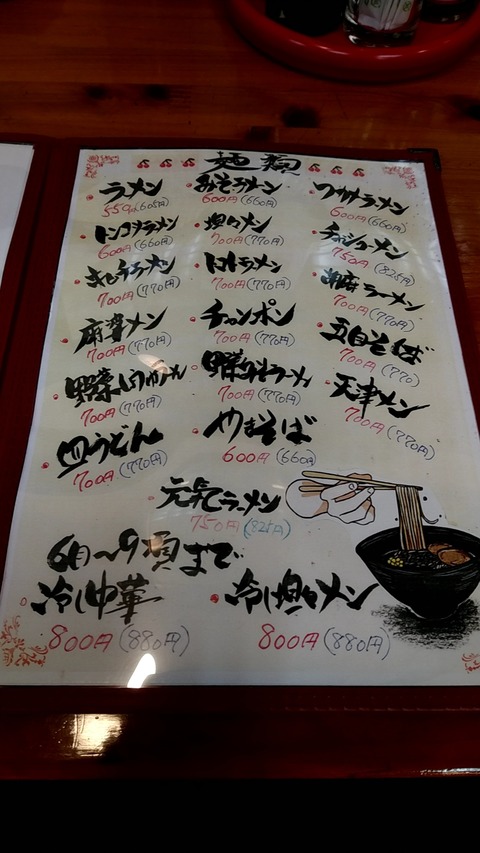 麺類
ラーメン みそラーメン ワカメラーメン
550円(605円) 600円(660円) 600円(660円)
トンコツラーメン 坦々メン チャーシューメン
600円(660円) 700円(770円) 750円(825円)
キムチラーメン トマトラーメン 胡麻ラーメン
700円(770円) 700円(770円) 700円(770円)
麻婆メン チャンポン 五目そば
700円(770円) 700円(770円) 700円(770)
野菜しょうゆラーメン 野菜みそラーメン 天津メン
700円(770円) 700円(770円) 700円(770円)
皿うどん やきそば
700円(770円) 600円(660円)
元気てラーメン
750円(825円)
6月〜9月頃まで
冷し中華 冷し坦々メン
800円(880円) 800円(880円)